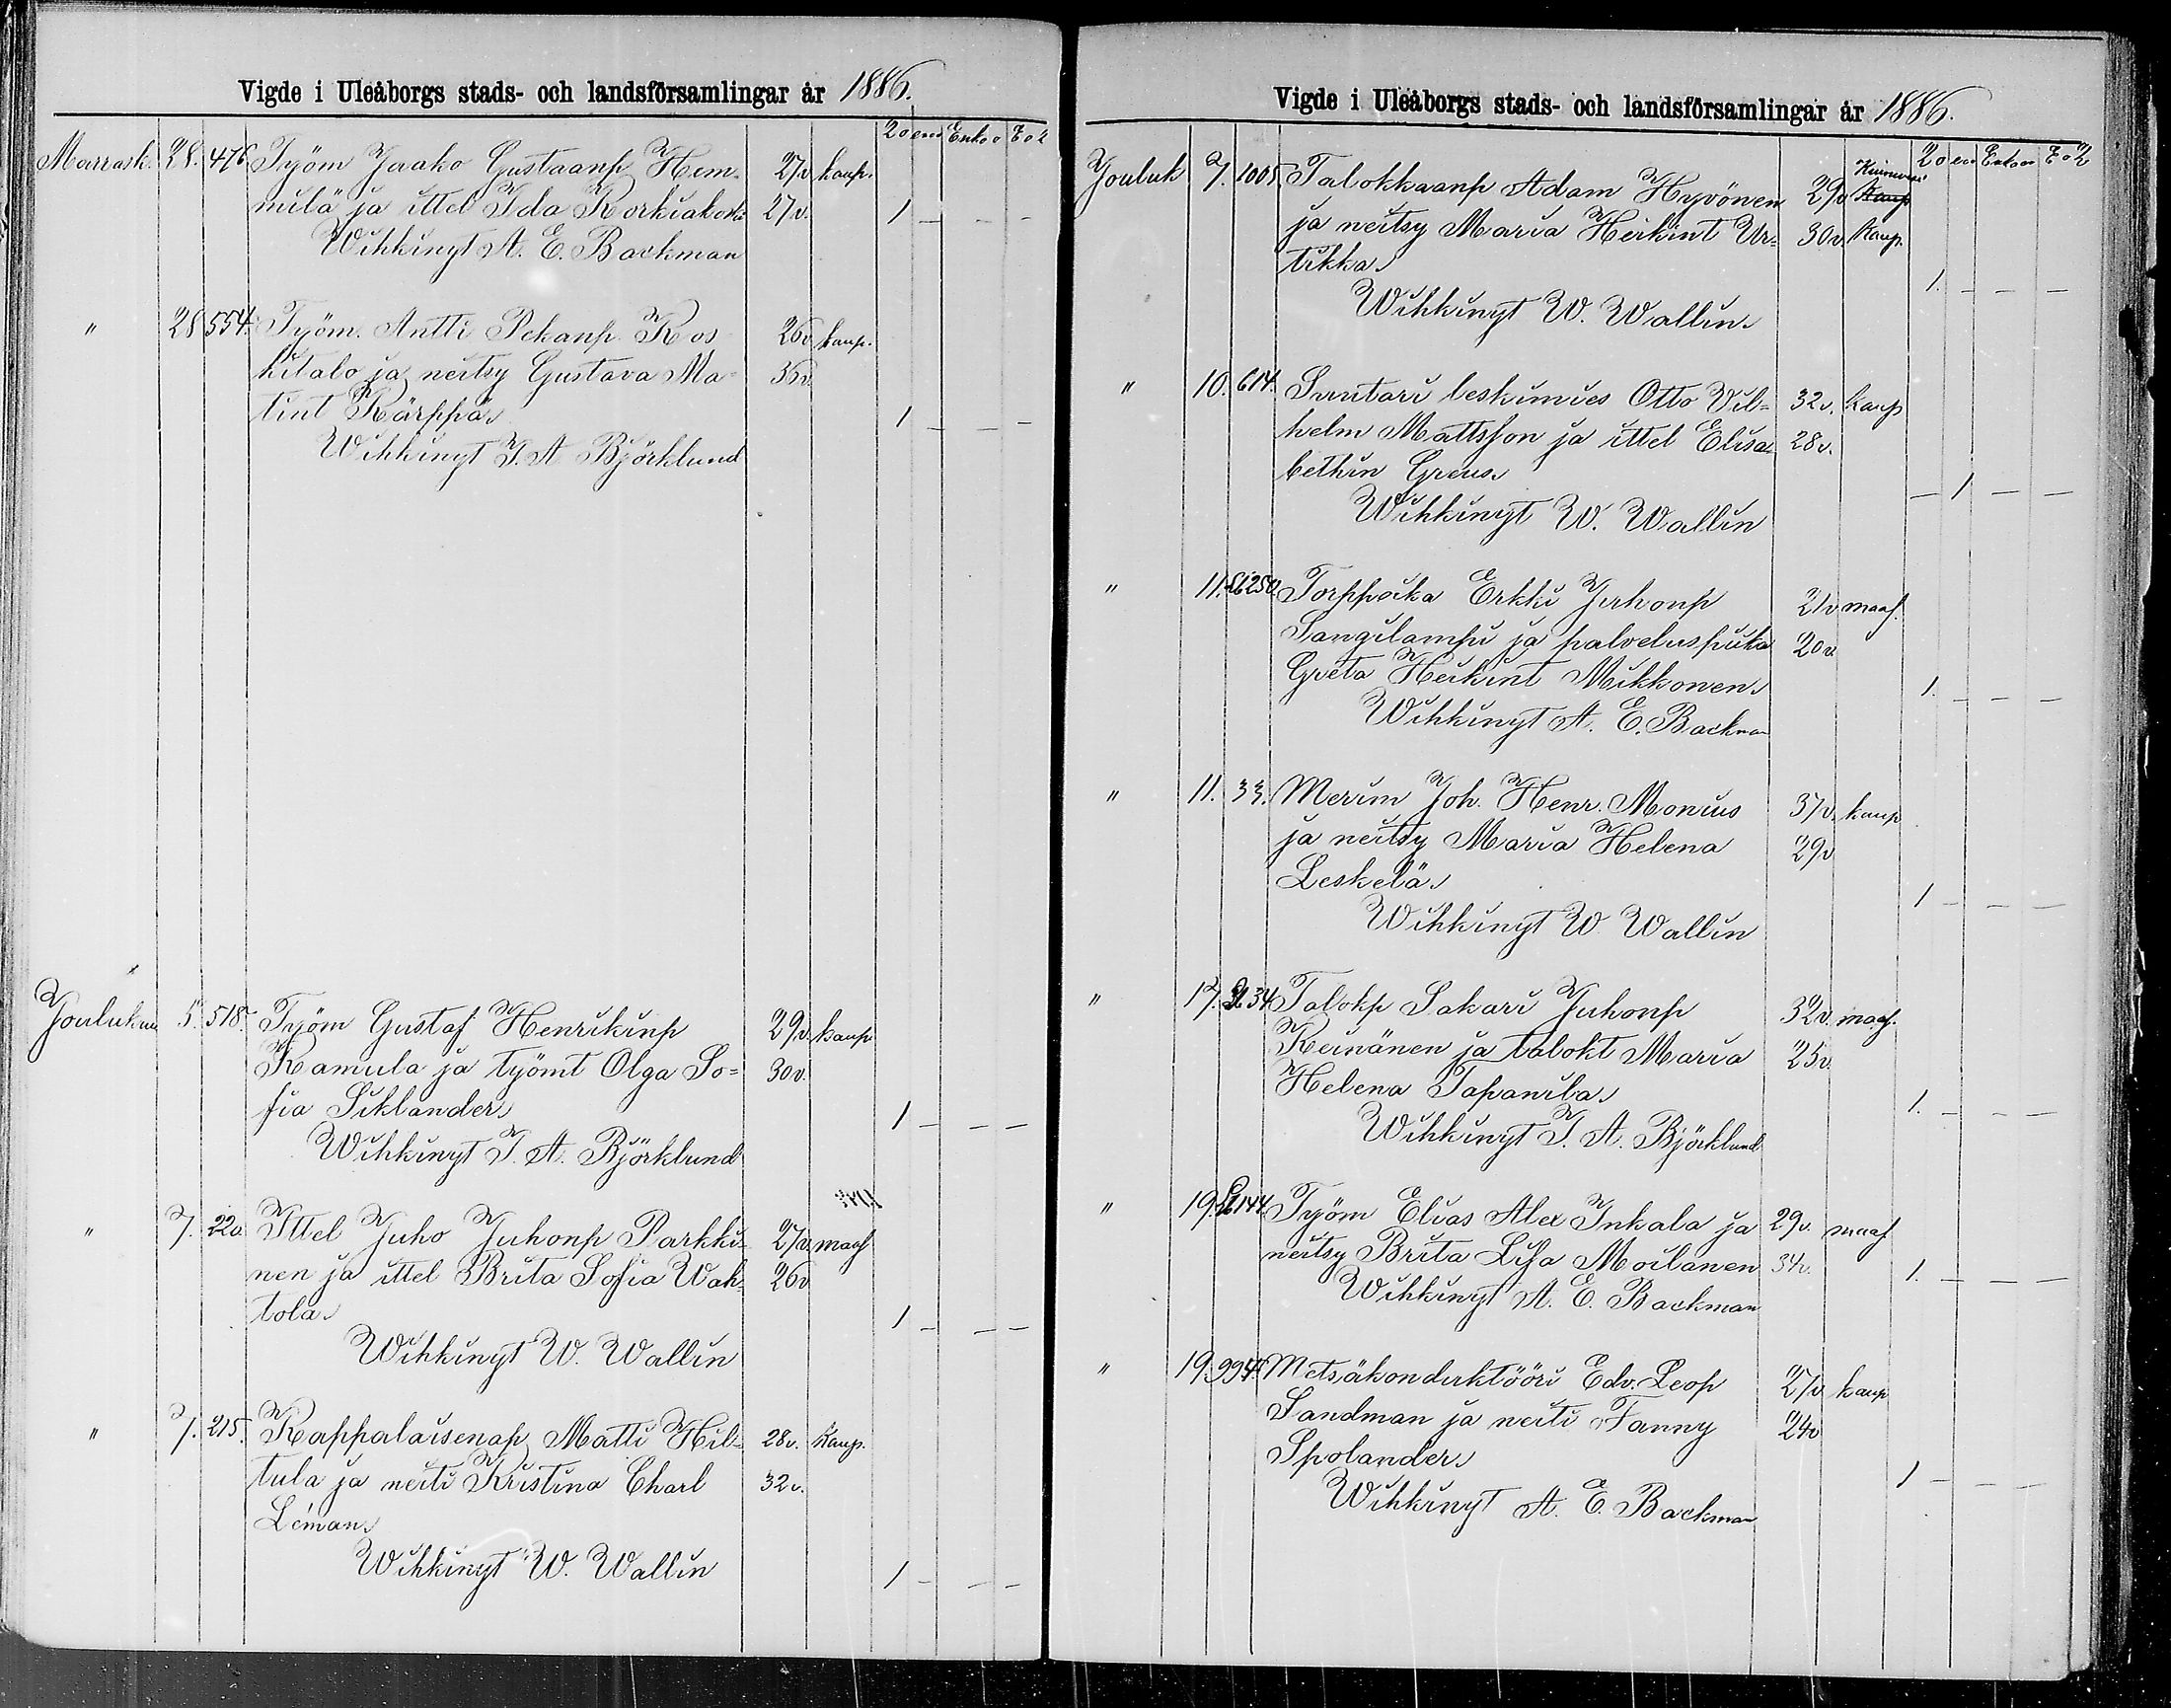 Vigde i Uleåborgs stads- och landsförsamlingar år 1886.
Marrask. 28. 476. Työm Jaako Gustaanp Hem- 27v kaup.
milä ja ittel Ida Korkiakoski 27v. 1 - - -
Wihkinyt A. E. Backman
" 28 554. Työm. Antti Pekanp. Kos 26v kaup.
kitalo ja neitsy Gustava Ma- 36v.
tint Kärppä. 1 - - -
Wihkinyt I. A Björklund
Jouluk 5. 518. Työm Gustaf Henrikinp 29v. kaup
Ramula ja työmt Olga So= 30v.
fia Siklander. 1 - - -
Wihkinyt I. A. Björklund
" 7. 220. Ittel Juho Juhonp Parkki- 27v. maas
nen ja ittel Brita Sofia Wah- 26v
tola. 1 - - -
Wihkinyt W. Wallin
" 7. 215. Kappalaisenap Matti Hil- 28v. Kaup.
tula ja neiti Kristina Charl 32v.
Léman.
Wihkinyt W. Wallin 1 - - -
Vigde i Uleåborgs stads- och landsförsamlingar år 1886.
Jouluk 7. 1005. Talokkaanp Adam Hyvönen 29v Kaup
ja neitsy Maria Heikint Ur- 30v Kaup.
tikka. 1. - - -
Wihkinyt W. Wallin.
" 10. 614. Suutari leskimies Otto Vil- 32v. kaup
helm Mattsson ja ittel Elisa- 28v.
bethin Greus. - 1 - -
Wihkinyt W. Wallin
" 11. 250. Torppoika Erkki Juhonp 21v maas.
Sangilampi ja palveluspiika 20v.
Greta Heikint Mikkonen. 1. - - -
Wihkinyt A. E. Backman
" 11. 33. Merim Joh. Henr. Monius 37v. kaup
ja neitsy Maria Helena 29v
Leskelä. 1 - - -
Wihkinyt W. Wallin
" 17. 34 Talokp Sakari Juhonp 32v. maas.
Keinänen ja talokt Maria 25v.
Helena Tapanila. 1. - - -
Wihkinyt I. A. Björklund
" 19. 144. Työm Elias Alex Inkala ja 29v. maas
neitsy Brita Lisa Moilanen 34v. 1. - - -
Wihkinyt A. E. Backman
" 19. 994. Metsäkonduktööri Edv. Leop 27v kaup
Sandman ja neiti Fanny 24v
Spolander. 1 - - -
Wihkinyt A. E. Backman